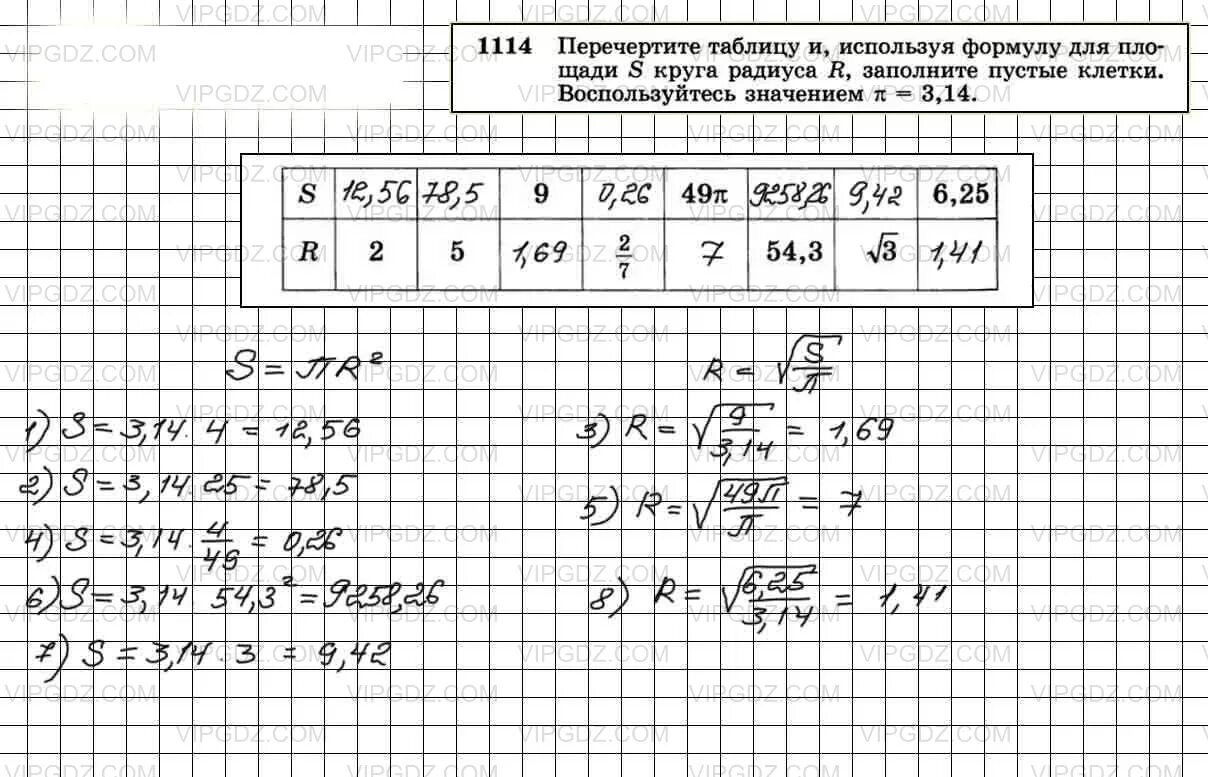 1114 Перечертите таблицу и, используя формулу для пло-
щади S круга радиуса R, заполните пустые клетки.
Воспользуйтесь значением π = 3,14.
S 12,56 78,5 9 0,26 49π 9258,26 9,42 6,25
R 2 5 1,69 2/7 7 54,3 √3 1,41
S = πR² R = √(S/π)
1) S = 3,14 · 4 = 12,56 3) R = √(9/3,14) = 1,69
2) S = 3,14 · 25 = 78,5 5) R = √(49π/π) = 7
4) S = 3,14 · 4/49 = 0,26
6) S = 3,14 54,3² = 9258,26 8) R = √(6,25/3,14) = 1,41
7) S = 3,14 · 3 = 9,42
VIPGDZ.COM